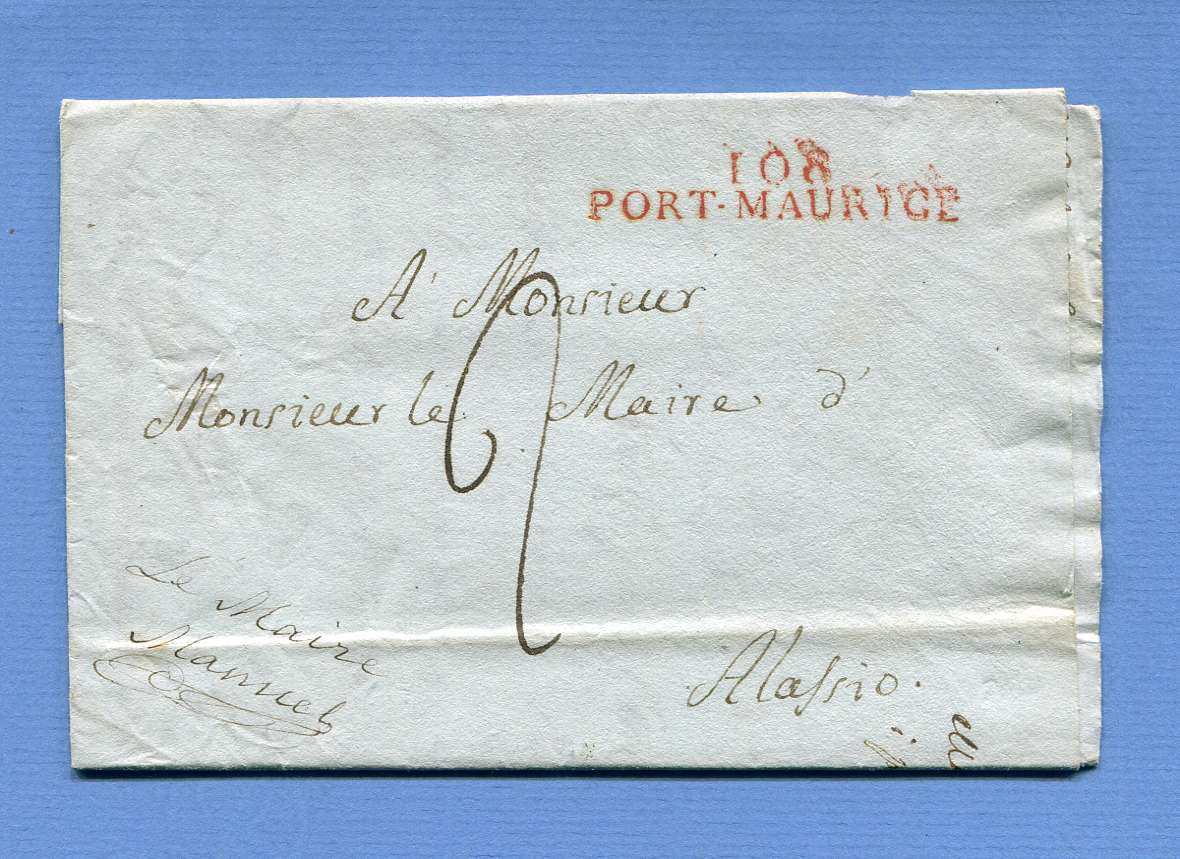 108
PORT-MAURICE
A' Monsieur
Monsieur le Maire d'
Alassio.
Le Maire